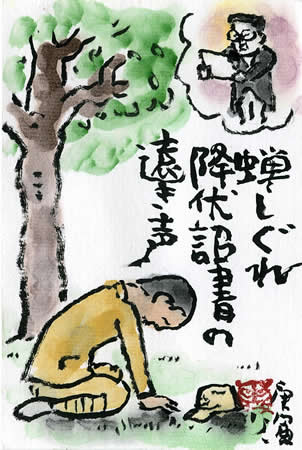 蝉しぐれ
降伏詔書の
遠き声